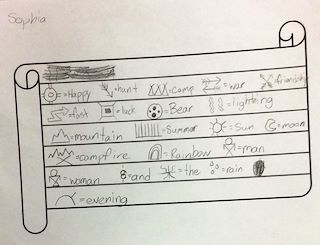 Sophia
=Happy =hunt =camp =war =friendship
=fast =luck =Bear =lightning
=mountain =Summer =Sun =moon
=campfire =Rainbow =man
=woman =and =the =rain
=evening